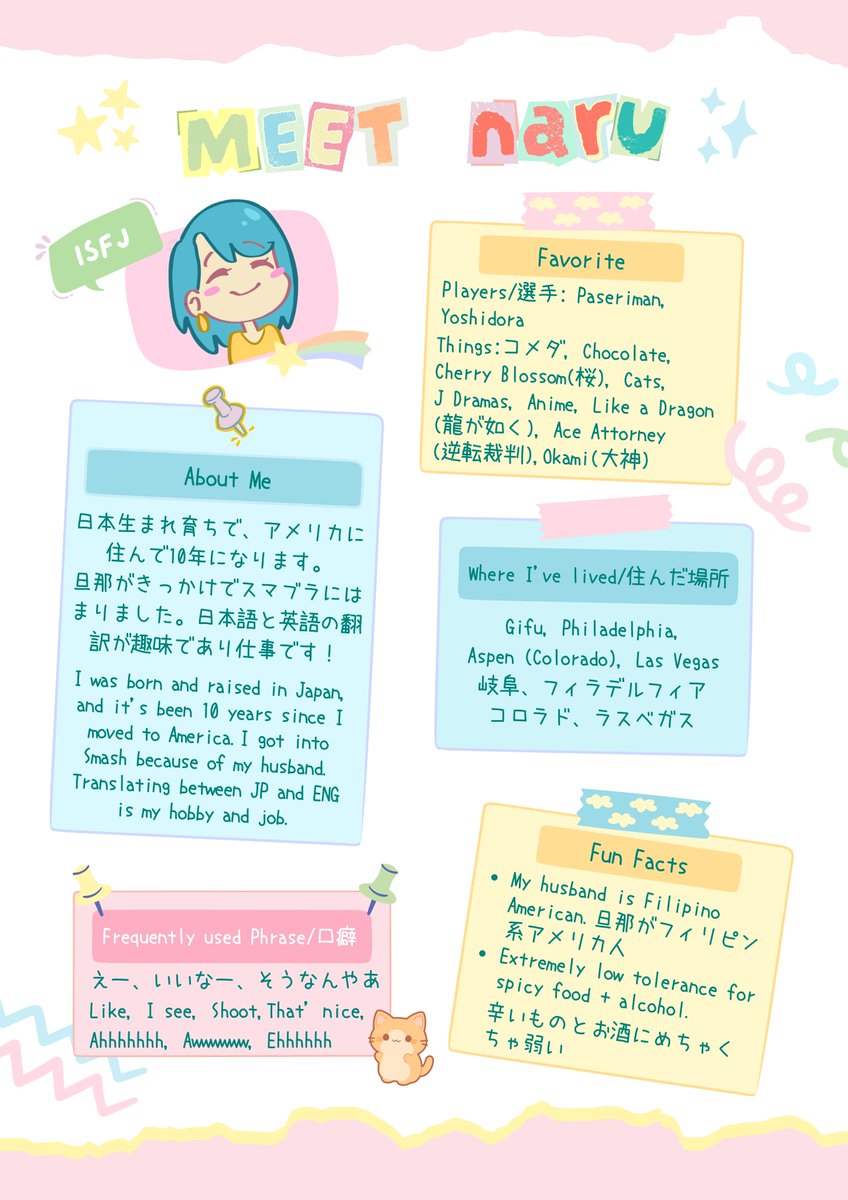 MEET naru
ISFJ
About Me
日本生まれ育ちで、アメリカに
住んで10年になります。
旦那がきっかけでスマブラには
まりました。日本語と英語の翻
訳が趣味であり仕事です！
I was born and raised in Japan,
and it's been 10 years since I
moved to America. I got into
Smash because of my husband.
Translating between JP and ENG
is my hobby and job.
Frequently used Phrase/口癖
えー、いいなー、そうなんやあ
Like, I see, Shoot,That' nice,
Ahhhhhhh, Awwwwww, Ehhhhhh
Favorite
Players/選手: Paseriman,
Yoshidora
Things:コメダ, Chocolate,
Cherry Blossom(桜), Cats,
J Dramas, Anime, Like a Dragon
(龍が如く), Ace Attorney
(逆転裁判),Okami(大神)
Where I've lived/住んだ場所
Gifu, Philadelphia,
Aspen (Colorado), Las Vegas
岐阜、フィラデルフィア
コロラド、ラスベガス
Fun Facts
• My husband is Filipino
American. 旦那がフィリピン
系アメリカ人
• Extremely low tolerance for
spicy food + alcohol.
辛いものとお酒にめちゃく
ちゃ弱い